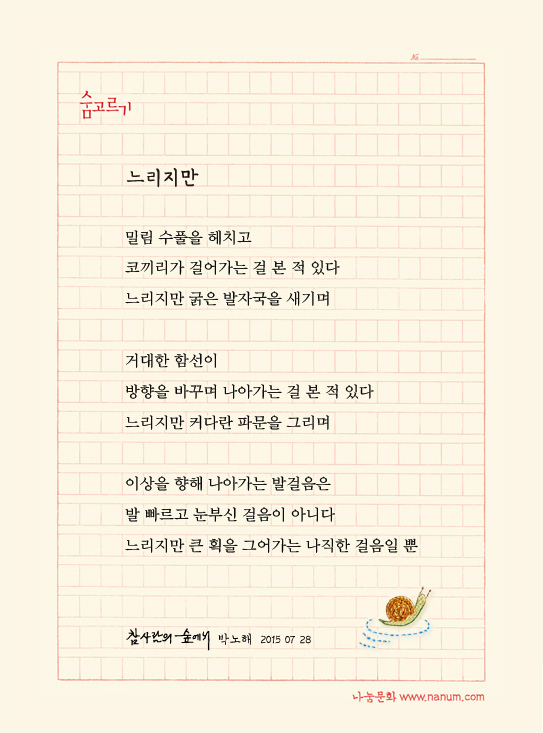 №
숨고르기
느리지만
밀림 수풀을 헤치고
코끼리가 걸어가는 걸 본 적 있다
느리지만 굵은 발자국을 새기며
거대한 함선이
방향을 바꾸며 나아가는 걸 본 적 있다
느리지만 커다란 파문을 그리며
이상을 향해 나아가는 발걸음은
발 빠르고 눈부신 걸음이 아니다
느리지만 큰 획을 그어가는 나직한 걸음일 뿐
참사람의 숲에서 박노해 2015 07 28
나눔문화 www.nanum.com